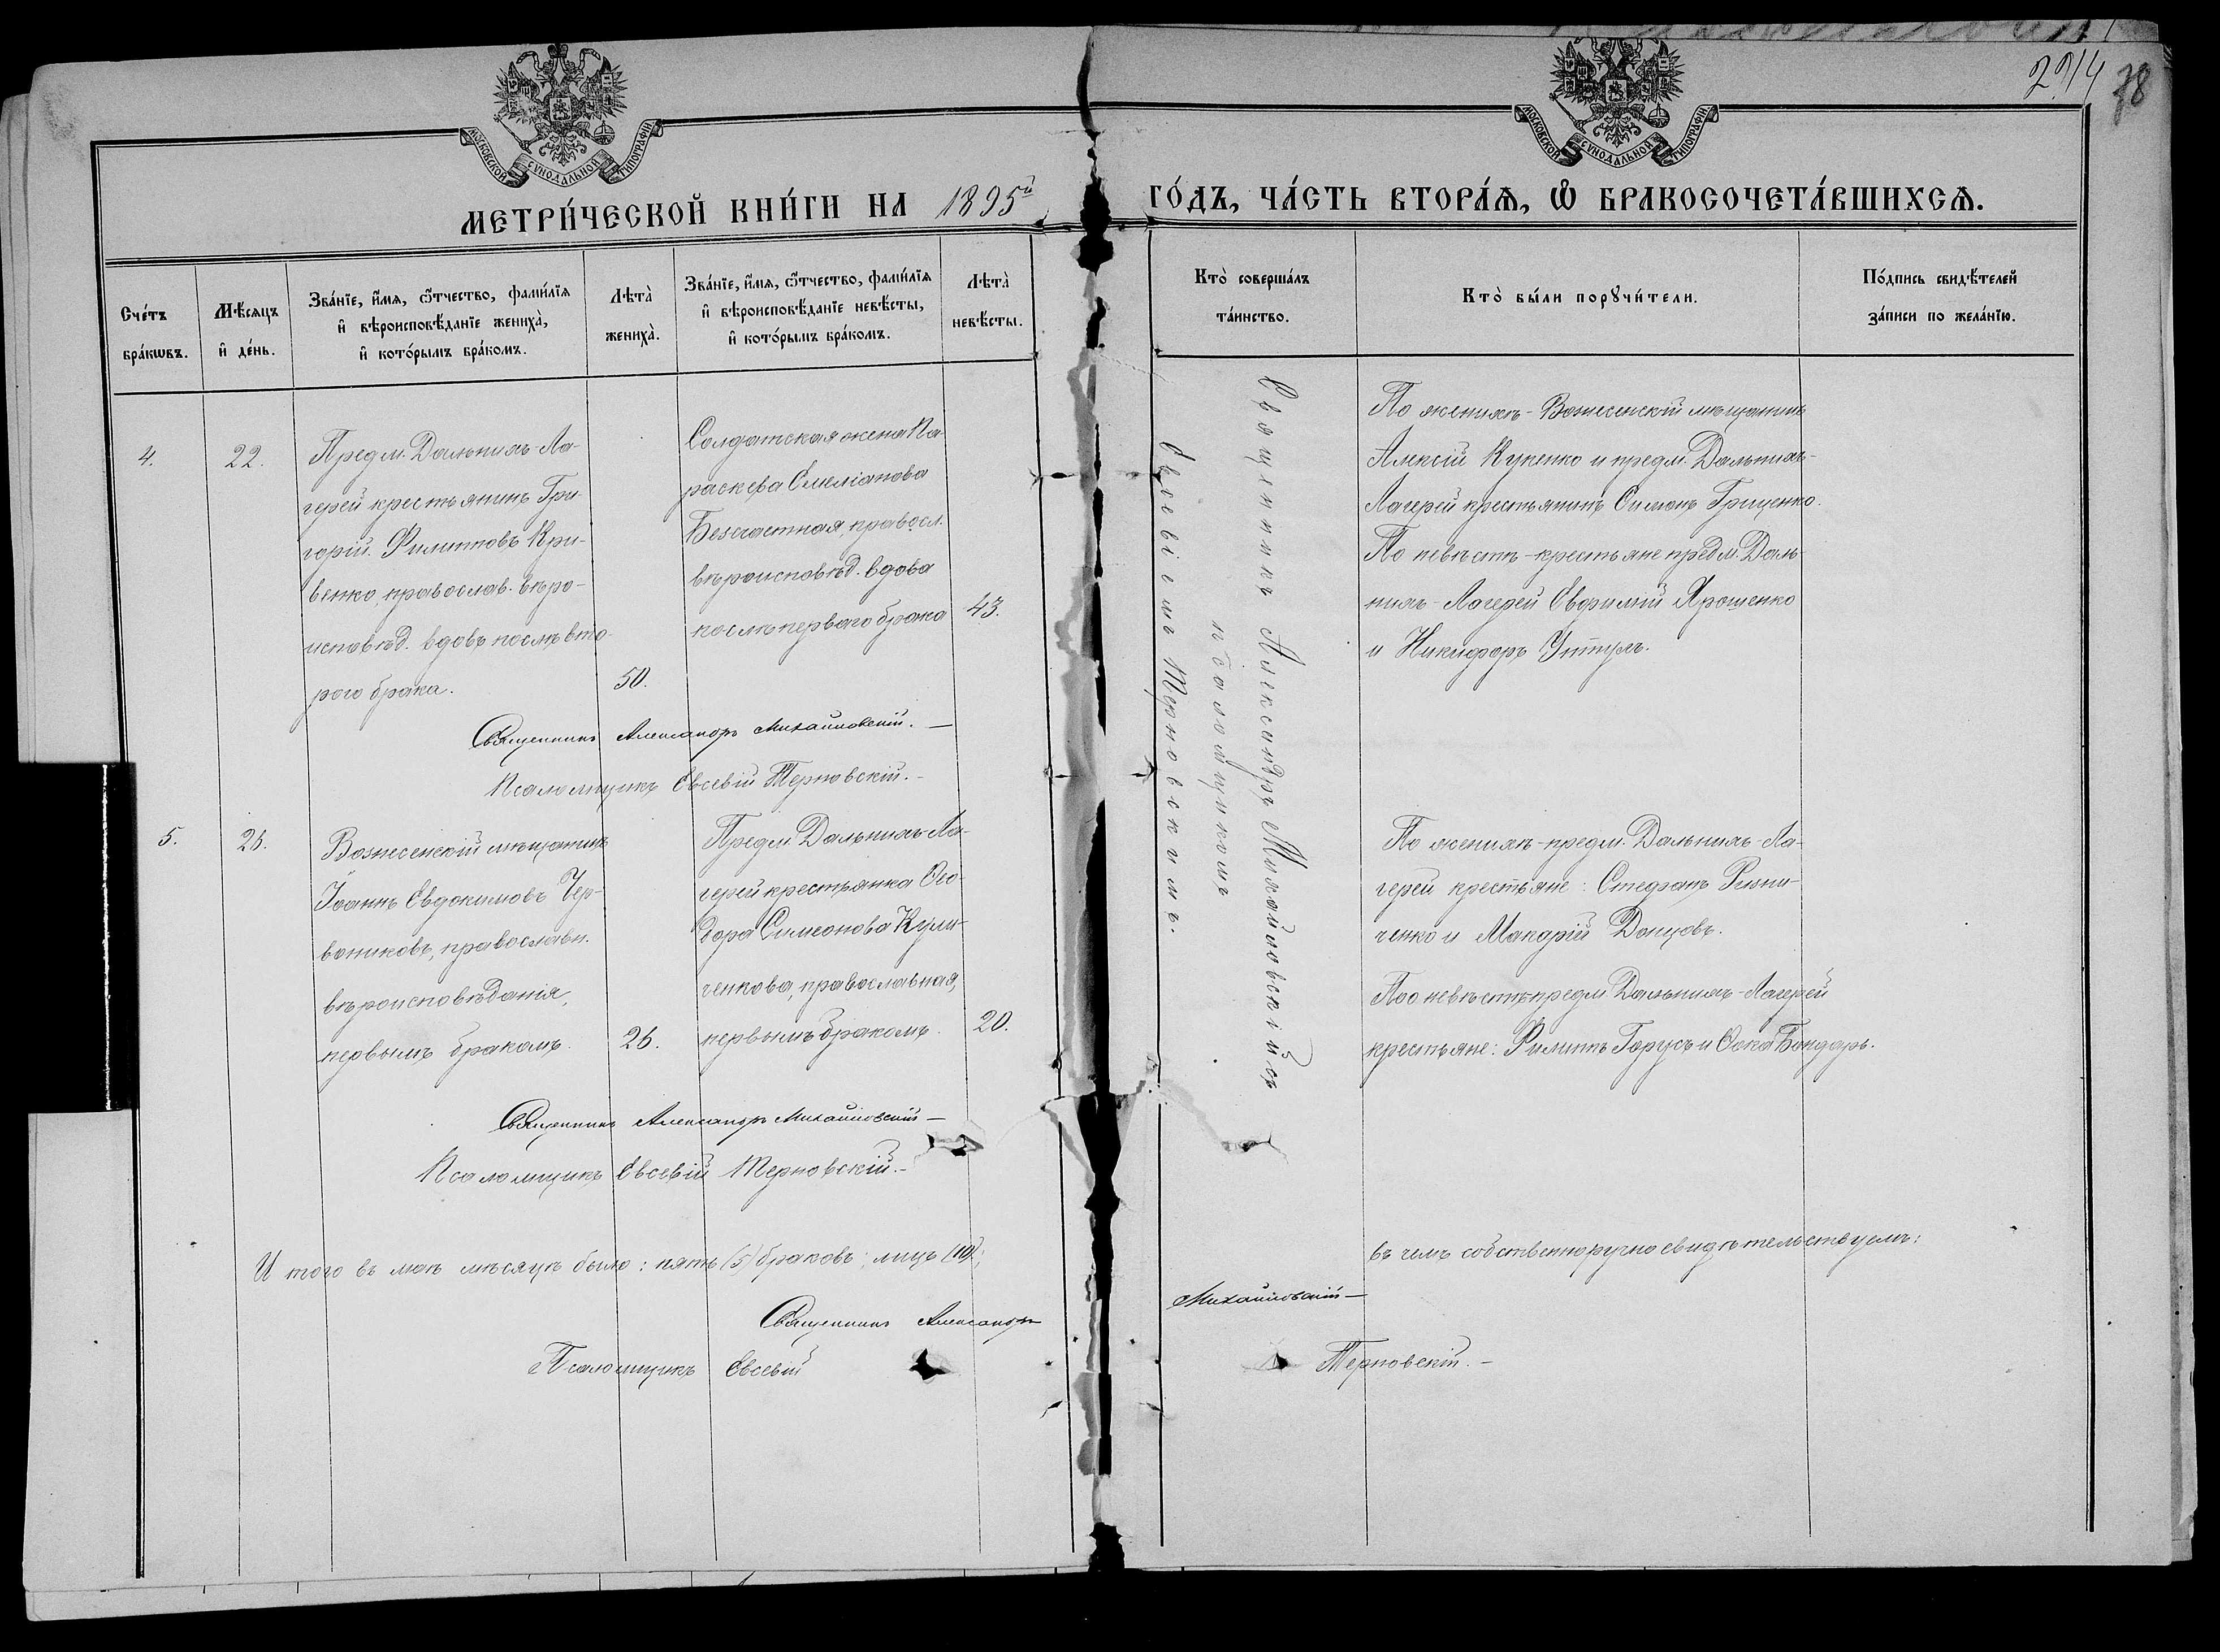 2914 78
МОСКОВСКОЙ СѴНОДАЛЬНОЙ ТИПОГРАФІИ
МОСКОВСКОЙ СѴНОДАЛЬНОЙ ТИПОГРАФІИ
МЕТРИ́ЧЕСКОЙ КНИ́ГИ НА 1895й ГО́ДЪ, ЧА́СТЬ ВТОРА́Ѧ, Ѽ БРАКОСОЧЕТА́ВШИХСѦ.
Сче́тъ
бра́кѡвъ.
Мѣ́сяцъ
и҆ де́нь.
Зва́нїе, и҆́мѧ, ѻ҆́тчество, фами́лїѧ
и҆ вѣроисповѣ́данїе жениха̀,
и҆ кото́рымъ бра́комъ.
Лѣта̀
жениха̀.
Зва́нїе, и҆́мѧ, ѻ҆́тчество, фами́лїѧ
и҆ вѣроисповѣ́данїе невѣ́сты,
и҆ кото́рымъ бра́комъ.
Лѣта̀
невѣ́сты.
Кто̀ соверша́лъ
та́инство.
Кто̀ бы́ли порꙋчи́тели.
По́дпись свидѣ́телей
за́писи по жела́нїю.
4.
22.
Предм. Дальнихъ Ла-
герей крестьянинъ Гри
горій Филипповъ Кри-
венко, православ. вѣро-
исповѣд. вдовъ послѣ вто-
рого брака.
50.
Солдатская жена Па-
раскева Емеліанова
Безсчастная, правосл.
вѣроисповѣд. вдова
послѣ перваго брака
43.
Священникъ Александръ Михайловскій с
псаломщикомъ
Евсевіемъ Терновскимъ.
По женихѣ - Вознесенскій мѣщанинъ
Алексій Куценко и предм. Дальнихъ-
Лагерей крестьянинъ Симонъ Гриценко.
По невѣстѣ - крестьяне предм. Даль-
нихъ - Лагерей Евфимій Ярошенко
и Никифоръ
Священникъ Александръ Михайловскій. —
Псаломщикъ Евсевій Терновскій. -
5.
26.
Вознесенскій мѣщанинъ
Іоаннъ Евдокимовъ Чер-
вониковъ, православн.
вѣроисповѣданія,
первымъ бракомъ.
26.
Предм. Дальнихъ-Ла-
герей крестьянка Ѳео-
дора Симеонова Кули-
ченкова, православная,
первымъ бракомъ.
20.
По женихѣ - предм. Дальнихъ - Ла-
герей крестьяне: Стефанъ Резни-
ченко и Макарій Донцовъ.
По невѣстѣ предм. Дальнихъ - Лагерей
крестьяне: Филиппъ Горусъ и Ѳока Бондарь.
Священникъ Александръ Михайловскій —
Псаломщикъ Евсевій Терновскій. -
Итого въ маѣ мѣсяцѣ было: пять (5) браковъ; лицъ (10); въ чемъ собственноручно свидѣтельствуемъ:
Священникъ Александръ Михайловскій —
Псаломщикъ Евсевій Терновскій. -